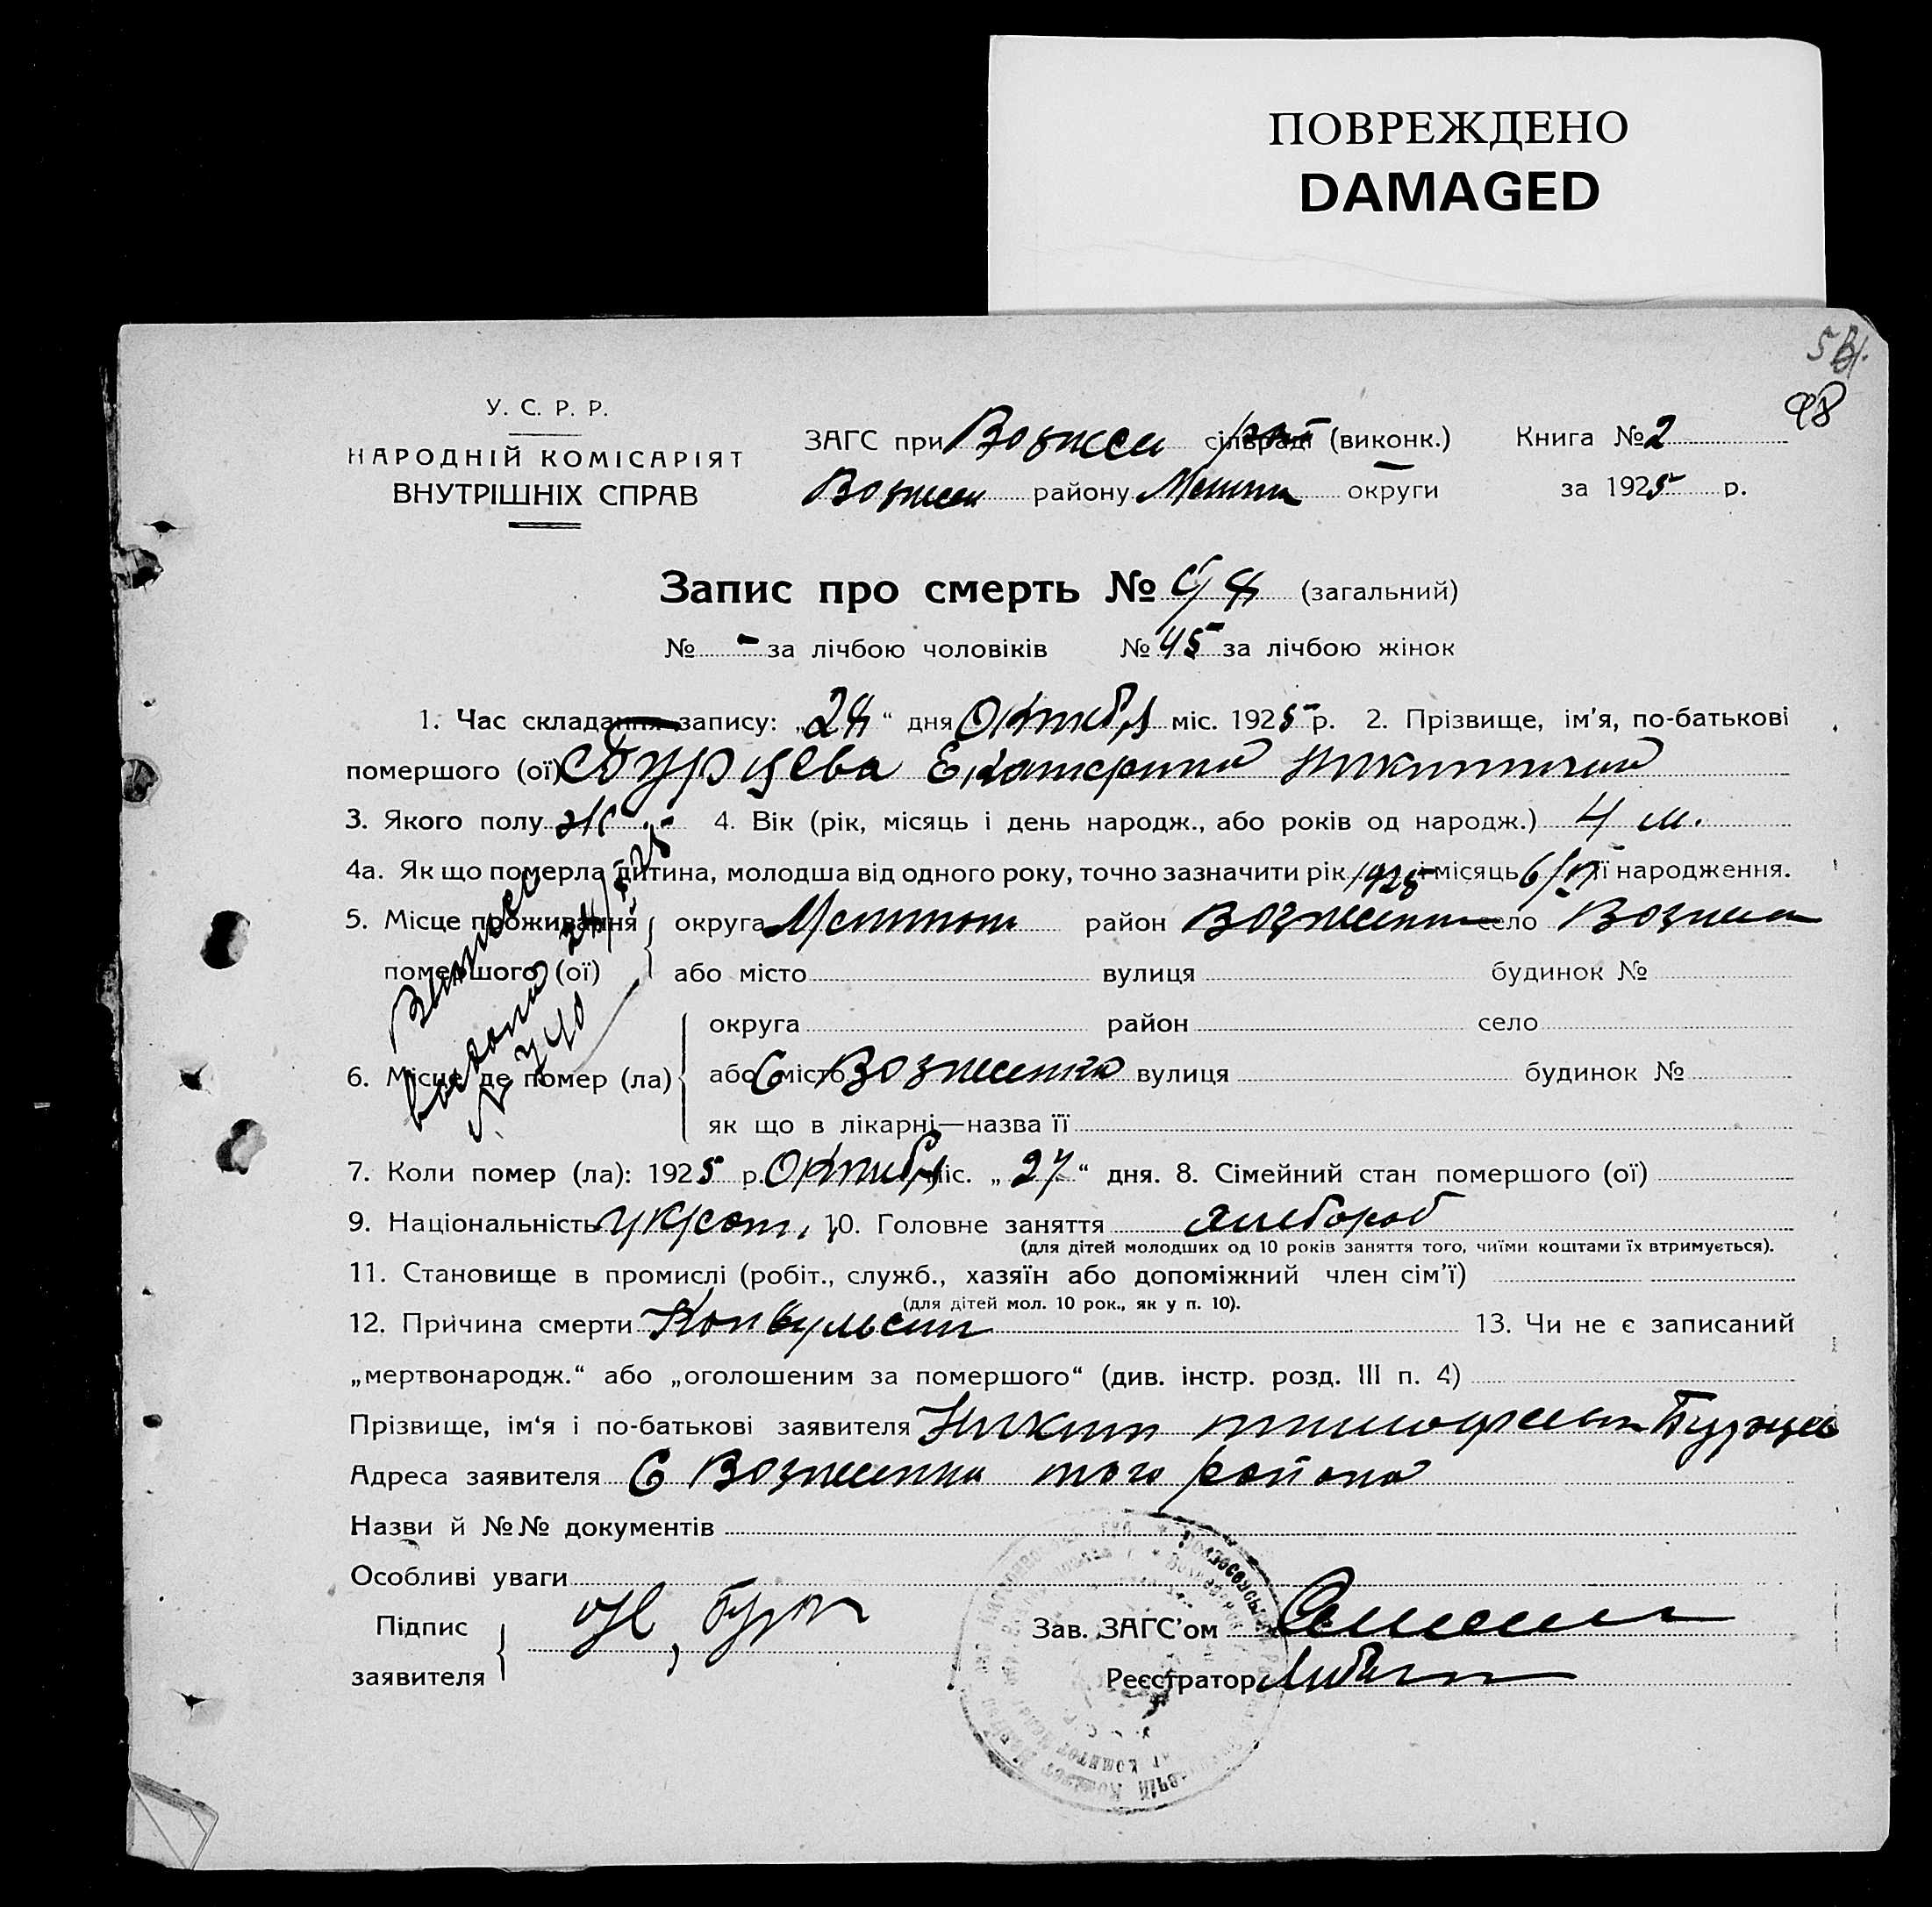 ПОВРЕЖДЕНО
DAMAGED
98
У. С. Р. Р.
НАРОДНІЙ КОМІСАРІЯТ
ВНУТРІШНІХ СПРАВ
ЗАГС при Вознесен сільраді (виконк.) Книга № 2
Вознесен району округи за 1925 р.
Запис про смерть № (загальний)
№ - за лічбою чоловіків № 45 за лічбою жінок
1. Час складання запису: „28“ дня Октября міс. 1925 р. 2. Прізвище, ім'я, по-батькові
помершого (ої) Бурцева Екатерина Никитична
3. Якого полу ж 4. Вік (рік, місяць і день народж., або років од народж.) 4 м.
4а. Як що померла дитина, молодша від одного року, точно зазначити рік 1925 і місяць 6/VI її народження.
5. Місце проживання округа Мелитоп район Вознесен село Вознесен
помершого (ої) або місто вулиця будинок №
округа район село
6. Місце де помер (ла) або місто С Вознесенка вулиця будинок №
як що в лікарні—назва її
7. Коли помер (ла): 1925 р. Октября міс. „27“ дня. 8. Сімейний стан помершого (ої)
9. Національність 10. Головне заняття хлебороб
(для дітей молодших од 10 років заняття того, чиїми коштами їх втримується).
11. Становище в промислі (робіт., служб., хазяїн або допоміжний член сім'ї)
(для дітей мол. 10 рок., як у п. 10).
12. Причина смерти Конвульсии 13. Чи не є записаний
„мертвонародж.“ або „оголошеним за помершого“ (див. інстр. розд. III п. 4)
Прізвище, ім'я і по-батькові заявителя Никита Тимофеевич Бурцев
Адреса заявителя С Вознесенка того района
Назви й №№ документів
Особливі уваги
Підпис
заявителя Н, Бурц
Зав. ЗАГС'ом
Реєстратор